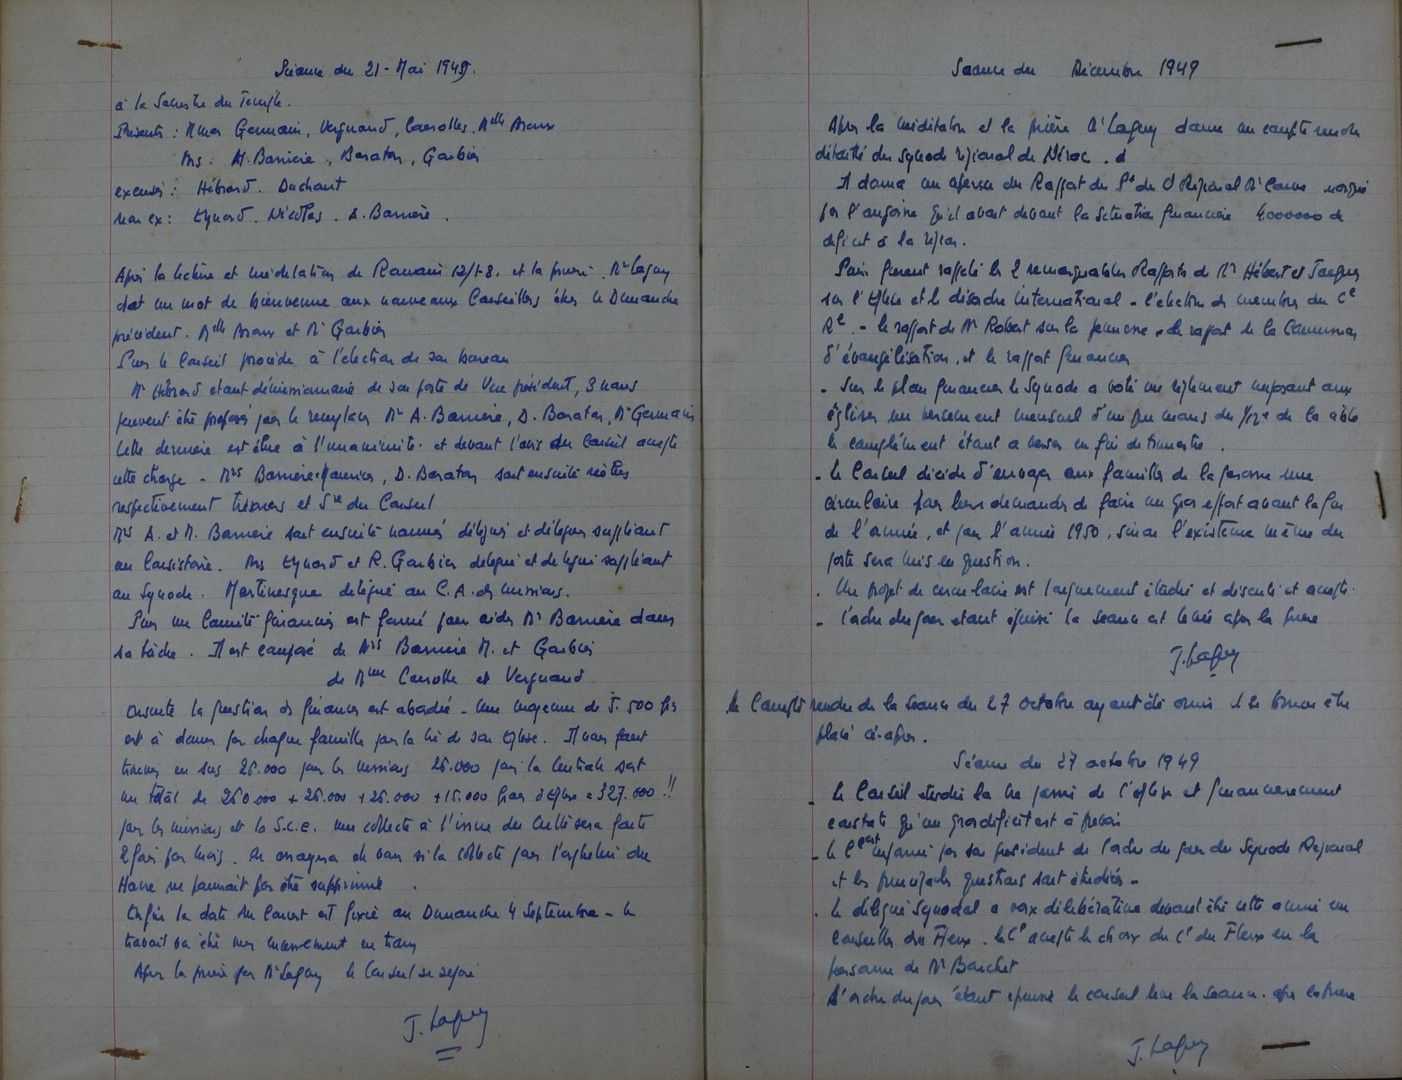 Séance du 21 - Mai 1949.
à la Sacristie du Temple.
Présents : Mmes Germain, Vergnaud, Carrolle, Melle Broux
Mrs : M. Barrière, Baraton, Garbier
excusés : Hébrard. Duchant
non ex : Eynard. Nicolas. A. Barrière.
Après la lecture et méditation de Romains 12/1-8. et la prière. Mr Laguy
dit un mot de bienvenue aux nouveaux Conseillers élus le Dimanche
précédent. Melle Broux et Mr Garbier
Puis le Conseil procède à l'élection de son bureau
Mr Hébrard étant démissionnaire de son poste de Vice président, 3 noms
peuvent être proposés pour le remplacer Mr A. Barrière, D. Baraton, Me Germain
Cette dernière est élue à l'unanimité. et devant l'avis du Conseil accepte
cette charge - Mrs Barrière Maurice, D. Baraton sont ensuite réélus
respectivement trésorier et Sre du Conseil
Mrs A. et M. Barrière sont ensuite nommés délégué et délégué suppléant
au Consistoire. Mrs Eynard et R. Garbier délégué et délégué suppléant
au Synode. Martinesque délégué au C.A. des missions.
Puis un Comité financier est formé pour aider Mr Barrière dans
sa tâche. Il est composé de Mrs Barrière M. et Garbier
de Mme Carrolle et Vergnaud
Ensuite la question des finances est abordée - Une moyenne de 5.500 frs
est à donner par chaque famille pour la vie de son église. Il nous faut
trouver en sus 26.000 pour les missions 26.000 pour la Centrale soit
un total de 260.000 + 26.000 + 26.000 + 15.000 frais d'église = 327.000 !!
pour les missions et la S.C.E. une collecte à l'issue du Culte sera faite
2 fois par mois. On essayera de voir si la collecte pour l'orphelinat du
Havre ne pourrait pas être supprimée.
Enfin la date du Concert est fixée au Dimanche 4 Septembre - le
travail va être mis en train
Après la prière par Mr Laguy le Conseil se sépare
J. Laguy
Séance du Décembre 1949
Après la méditation et la prière Mr Laguy donne un compte rendu
détaillé du Synode régional de Nérac.
Il donna un aperçu du Rapport du Pt du Cl Régional Mr
par l'angoisse qu'il avait devant la situation financière 4.000000 de
déficit à la région.
Puis furent rappelés les 2 remarquables Rapports de Mrs Hébert et Jacques
sur l'Église et le désordre international - l'élection des membres du Cl
Rl. - le rapport de Mr Robert sur la jeunesse, le rapport de la Commission
d'évangélisation, et le rapport financier
- Sur le plan financier le Synode a voté un règlement imposant aux
églises un versement mensuel d'un peu moins du 1/12e de la cible
le complément étant à verser en fin de trimestre.
- Le Conseil décide d'envoyer aux familles de la paroisse une
circulaire pour leur demander de faire un gros effort avant la fin
de l'année, et pour l'année 1950, sinon l'existence même du
poste sera mis en question.
. Un projet de circulaire est longuement étudié et discuté et accepté.
- L'ordre du jour étant épuisé la séance est levée après la prière
J. Laguy
Le Compte rendu de la séance du 27 octobre ayant été omis il se trouve être
placé ci-après.
Séance du 27 octobre 1949
- Le Conseil étudie la vie passée de l'église et financièrement
constate qu'un gros déficit est à prévoir
- Le Cl est informé par son président de l'ordre du jour du Synode Régional
et les principales questions sont étudiées -
. Le délégué Synodal a voix délibérative devant être cette année un
conseiller du Fleix. le Cl accepte le choix du Cl du Fleix en la
personne de Mr Bouchet
L'ordre du jour étant épuisé le conseil lève la séance. après la prière
J. Laguy